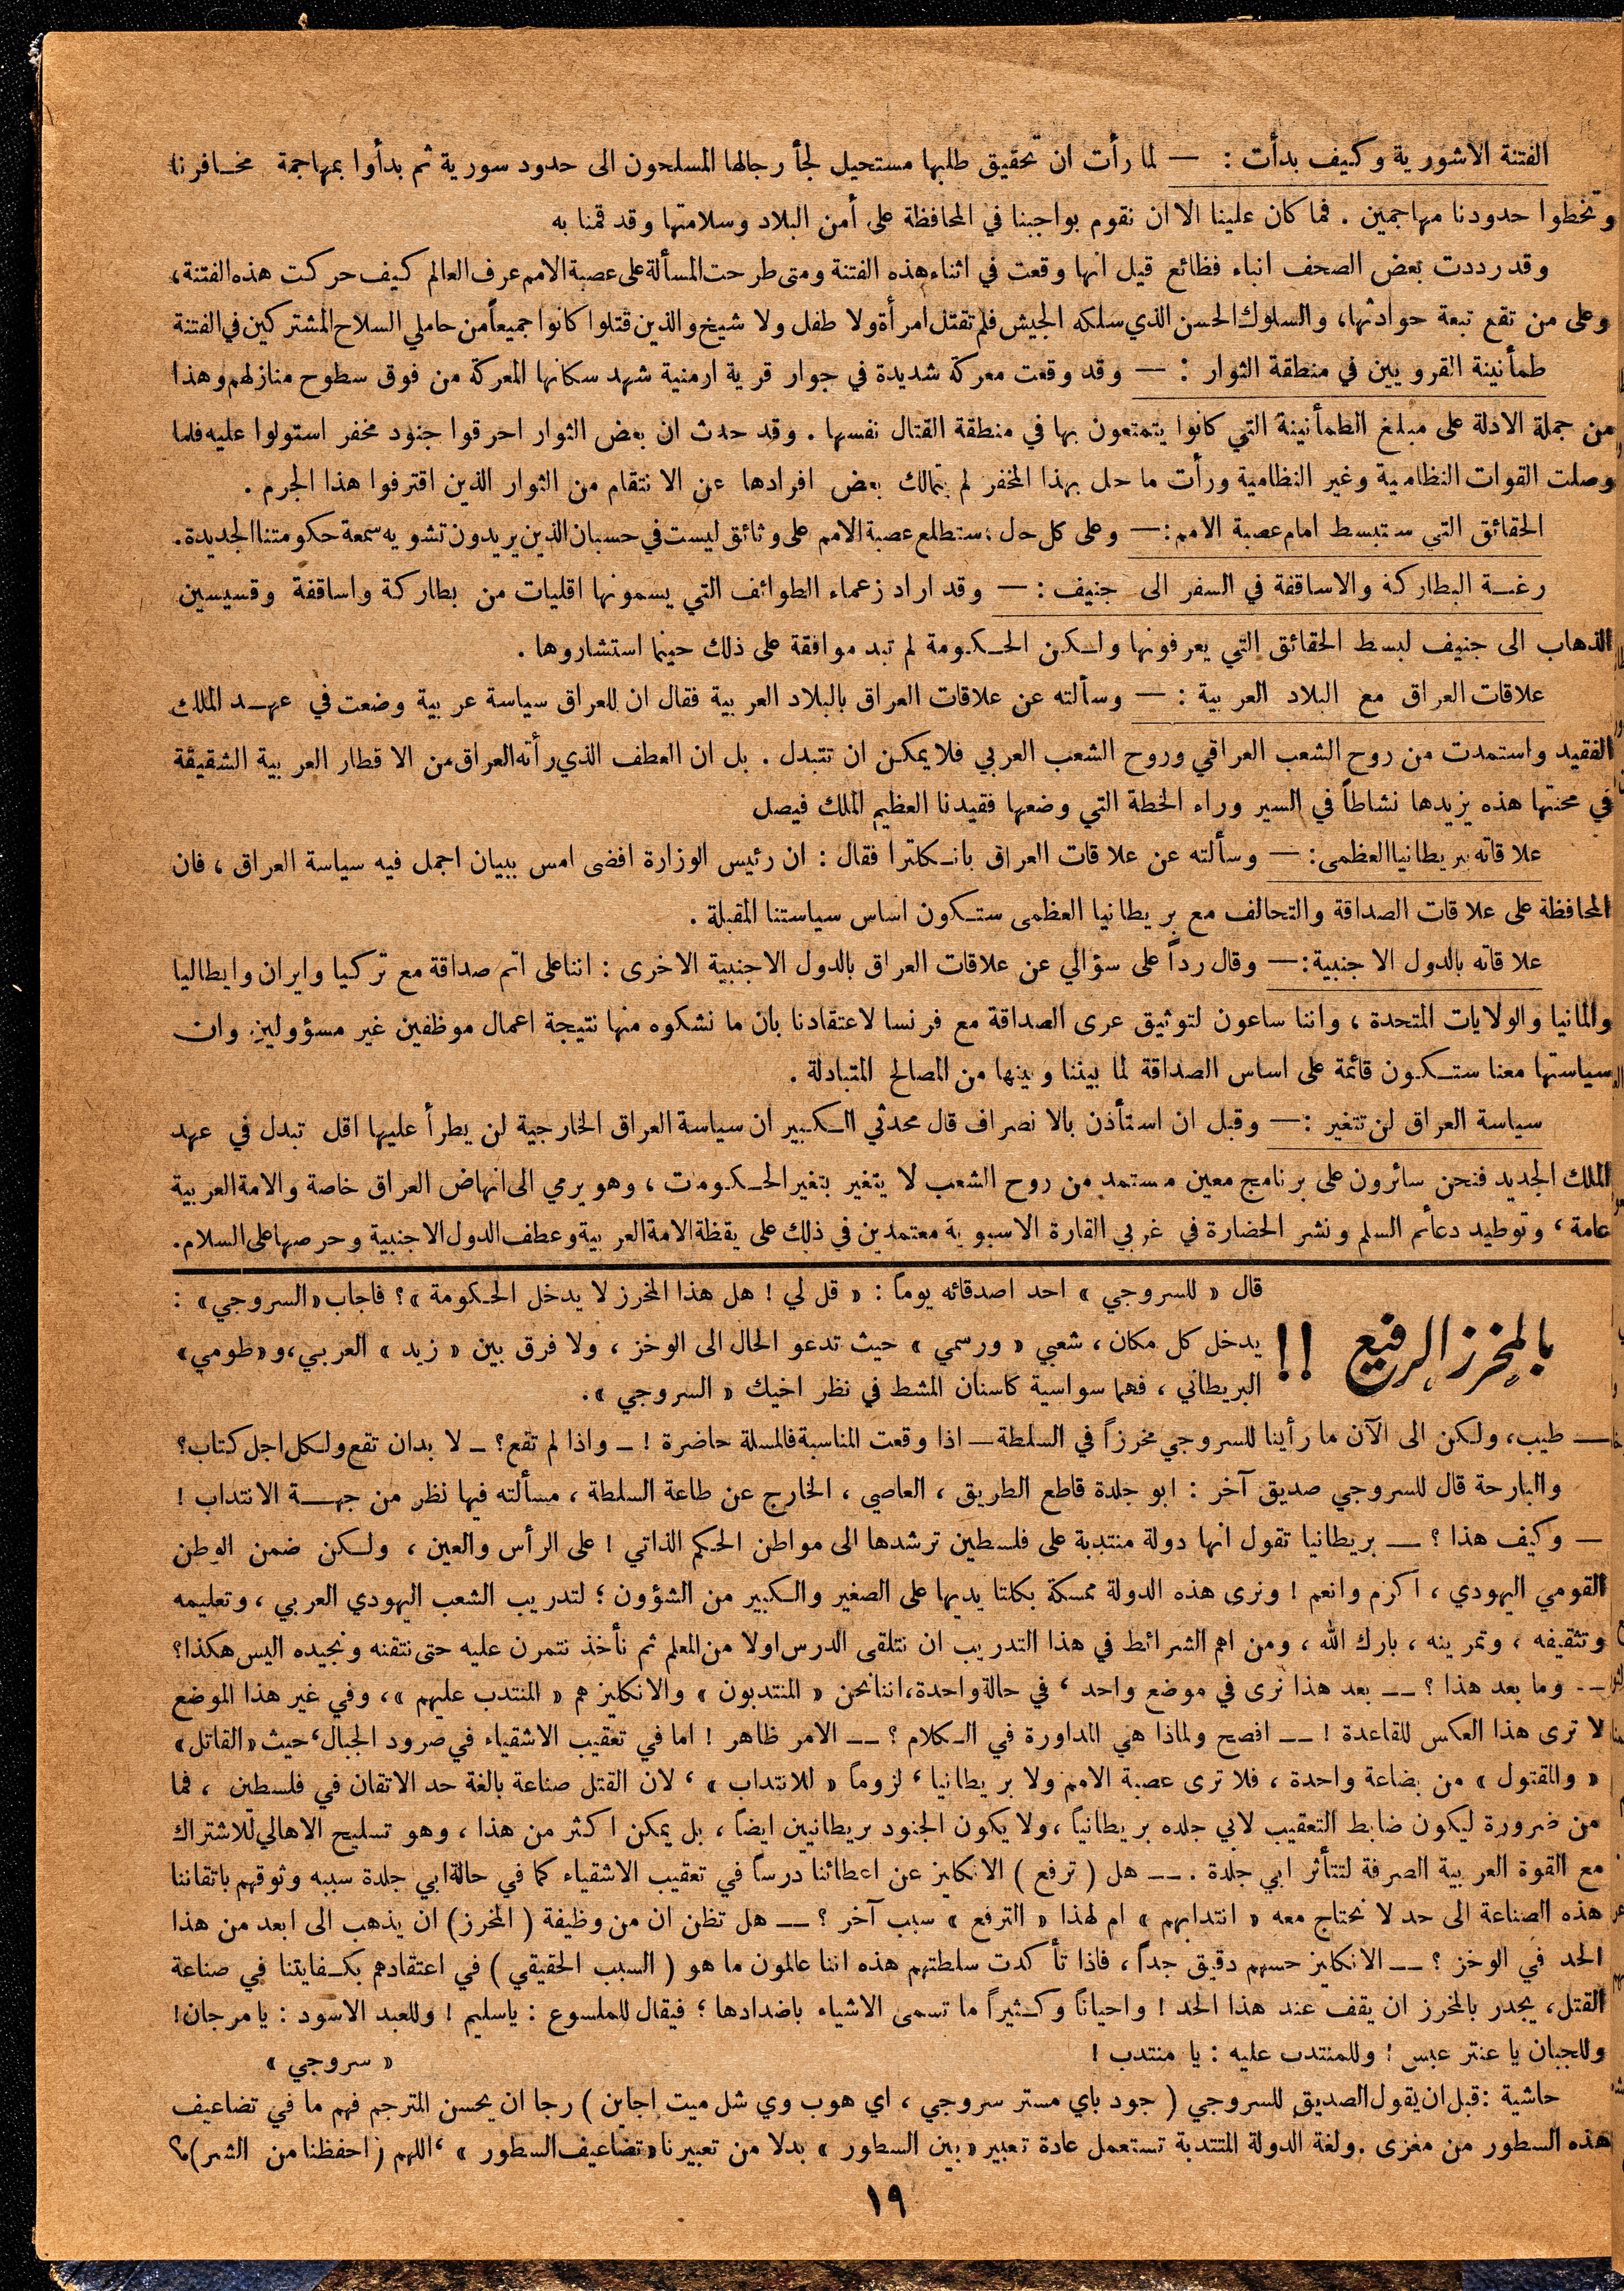 الفتنة الاشورية وكيف بدأت : — لما رأت ان تحقيق طلبها مستحيل لجأ رجالها المسلحون الى حدود سورية ثم بدأوا بمهاجمة مخافرنا
وتخطوا حدودنا مهاجمين . فما كان علينا الا ان نقوم بواجبنا في المحافظة على أمن البلاد وسلامتها وقد قمنا به
وقد رددت بعض الصحف انباء فظائع قيل انها وقعت في اثناء هذه الفتنة ومتى طرحت المسألة على عصبة الامم عرف العالم كيف حركت هذه الفتنة،
وعلى من تقع تبعة حوادثها، والسلوك الحسن الذي سلكه الجيش فلم تقتل امرأة ولا طفل ولا شيخ والذين قتلوا كانوا جميعاً من حاملي السلاح المشتركين في الفتنة
طمأنينة القرويين في منطقة الثوار : — وقد وقعت معركة شديدة في جوار قرية ارمنية شهد سكانها المعركة من فوق سطوح منازلهم وهذا
من جملة الادلة على مبلغ الطمأنينة التي كانوا يتمتعون بها في منطقة القتال نفسها . وقد حدث ان بعض الثوار احرقوا جنود مخفر استولوا عليه فلما
وصلت القوات النظامية وغير النظامية ورأت ما حل بهذا المخفر لم يتمالك بعض افرادها عن الانتقام من الثوار الذين اقترفوا هذا الجرم .
الحقائق التي ستبسط امام عصبة الامم : — وعلى كل حال ستطلع عصبة الامم على وثائق ليست في حسبان الذين يريدون تشويه سمعة حكومتنا الجديدة.
رغبة البطاركة والاساقفة في السفر الى جنيف : — وقد اراد زعماء الطوائف التي يسمونها اقليات من بطاركة واساقفة وقسيسين
الذهاب الى جنيف لبسط الحقائق التي يعرفونها ولكن الحكومة لم تبد موافقة على ذلك حينما استشاروها .
علاقات العراق مع البلاد العربية : — وسألته عن علاقات العراق بالبلاد العربية فقال ان للعراق سياسة عربية وضعت في عهد الملك
الفقيد واستمدت من روح الشعب العراقي وروح الشعب العربي فلا يمكن ان تتبدل . بل ان العطف الذي رأته العراق من الاقطار العربية الشقيقة
في محنتها هذه يزيدها نشاطاً في السير وراء الخطة التي وضعها فقيدنا العظيم الملك فيصل
علاقاته ببريطانيا العظمى : — وسألته عن علاقات العراق بانكلترا فقال : ان رئيس الوزارة افضى امس ببيان اجمل فيه سياسة العراق ، فان
المحافظة على علاقات الصداقة والتحالف مع بريطانيا العظمى ستكون اساس سياستنا المقبلة .
علاقاته بالدول الاجنبية : — وقال رداً على سؤالي عن علاقات العراق بالدول الاجنبية الاخرى : اننا على اتم صداقة مع تركيا وايران وايطاليا
والمانيا والولايات المتحدة ، واننا ساعون لتوثيق عرى الصداقة مع فرنسا لاعتقادنا بان ما نشكوه منها نتيجة اعمال موظفين غير مسؤولين وان
سياستها معنا ستكون قائمة على اساس الصداقة لما بيننا وبينها من المصالح المتبادلة .
سياسة العراق لن تتغير : — وقبل ان استأذن بالانصراف قال محدثي الكبير ان سياسة العراق الخارجية لن يطرأ عليها اقل تبدل في عهد
الملك الجديد فنحن سائرون على برنامج معين مستمد من روح الشعب لا يتغير بتغير الحكومات ، وهو يرمي الى انهاض العراق خاصة والامة العربية
عامة ، وتوطيد دعائم السلم ونشر الحضارة في غربي القارة الاسيوية معتمدين في ذلك على يقظة الامة العربية وعطف الدول الاجنبية وحرصها على السلام.
بالمخرز الرفيع !!
قال « للسروجي » احد اصدقائه يوماً : « قل لي ! هل هذا المخرز لا يدخل الحكومة » ؟ فاجاب «السروجي» :
يدخل كل مكان ، شعبي « ورسمي » حيث تدعو الحال الى الوخز ، ولا فرق بين « زيد » العربي، و«طومي»
البريطاني ، فهما سواسية كاسنان المشط في نظر اخيك « السروجي ».
— طيب، ولكن الى الآن ما رأينا للسروجي مخرزاً في السلطة — اذا وقعت المناسبة فالمسلة حاضرة ! — واذا لم تقع؟ — لا بد ان تقع ولكل اجل كتاب؟
والبارحة قال للسروجي صديق آخر : ابو جلدة قاطع الطريق ، العاصي ، الخارج عن طاعة السلطة ، مسألته فيها نظر من جهة الانتداب !
— وكيف هذا ؟ — بريطانيا تقول انها دولة منتدبة على فلسطين ترشدها الى مواطن الحكم الذاتي ! على الرأس والعين ، ولكن ضمن الوطن
القومي اليهودي ، اكرم وانعم ! ونرى هذه الدولة ممسكة بكلتا يديها على الصغير والكبير من الشؤون ؛ لتدريب الشعب اليهودي العربي ، وتعليمه
وتثقيفه ، وتمرينه ، بارك الله ، ومن اهم الشرائط في هذا التدريب ان نتلقى الدرس اولا من المعلم ثم نأخذ نتمرن عليه حتى نتقنه ونجيده اليس هكذا؟
— وما بعد هذا ؟ — بعد هذا نرى في موضع واحد ، في حالة واحدة، اننا نحن « المنتدبون » والانكليز هم « المنتدب عليهم » ، وفي غير هذا الموضع
لا ترى هذا العكس للقاعدة ! — افصح ولماذا هي المداورة في الكلام ؟ — الامر ظاهر ! اما في تعقيب الاشقياء في صرود الجبال، حيث «القاتل»
« والمقتول » من بضاعة واحدة ، فلا ترى عصبة الامم ولا بريطانيا ، لزوماً « للانتداب » ، لان القتل صناعة بالغة حد الاتقان في فلسطين ، فما
من ضرورة ليكون ضابط التعقيب لابي جلده بريطانياً ، ولا يكون الجنود بريطانيين ايضاً ، بل يمكن اكثر من هذا ، وهو تسليح الاهالي للاشتراك
مع القوة العربية الصرفة لتتأثر ابي جلدة . — هل ( ترفع ) الانكليز عن اعطائنا درساً في تعقيب الاشقياء كما في حالة ابي جلدة سببه وثوقهم باتقاننا
هذه الصناعة الى حد لا نحتاج معه « انتدابهم » ام لهذا « الترفع » سبب آخر ؟ — هل تظن ان من وظيفة ( المخرز ) ان يذهب الى ابعد من هذا
الحد في الوخز ؟ — الانكليز حسهم دقيق جداً ، فاذا تأكدت سلطتهم هذه اننا عالمون ما هو ( السبب الحقيقي ) في اعتقادهم بكفايتنا في صناعة
القتل، يجدر بالمخرز ان يقف عند هذا الحد ! واحياناً وكثيراً ما تسمى الاشياء باضدادها ؛ فيقال للملسوع : يا سليم ! وللعبد الاسود : يا مرجان!
وللجبان يا عنتر عبس ! وللمنتدب عليه : يا منتدب !
« سروجي »
حاشية : قبل ان يقول الصديق للسروجي ( جود باي مستر سروجي ، اي هوب وي شل ميت اجاين ) رجا ان يحسن المترجم فهم ما في تضاعيف
هذه السطور من مغزى . ولغة الدولة المنتدبة تستعمل عادة تعبير « بين السطور » بدلا من تعبيرنا «تضاعيف السطور » ، اللهم ( احفظنا من الشر )؟
١٩